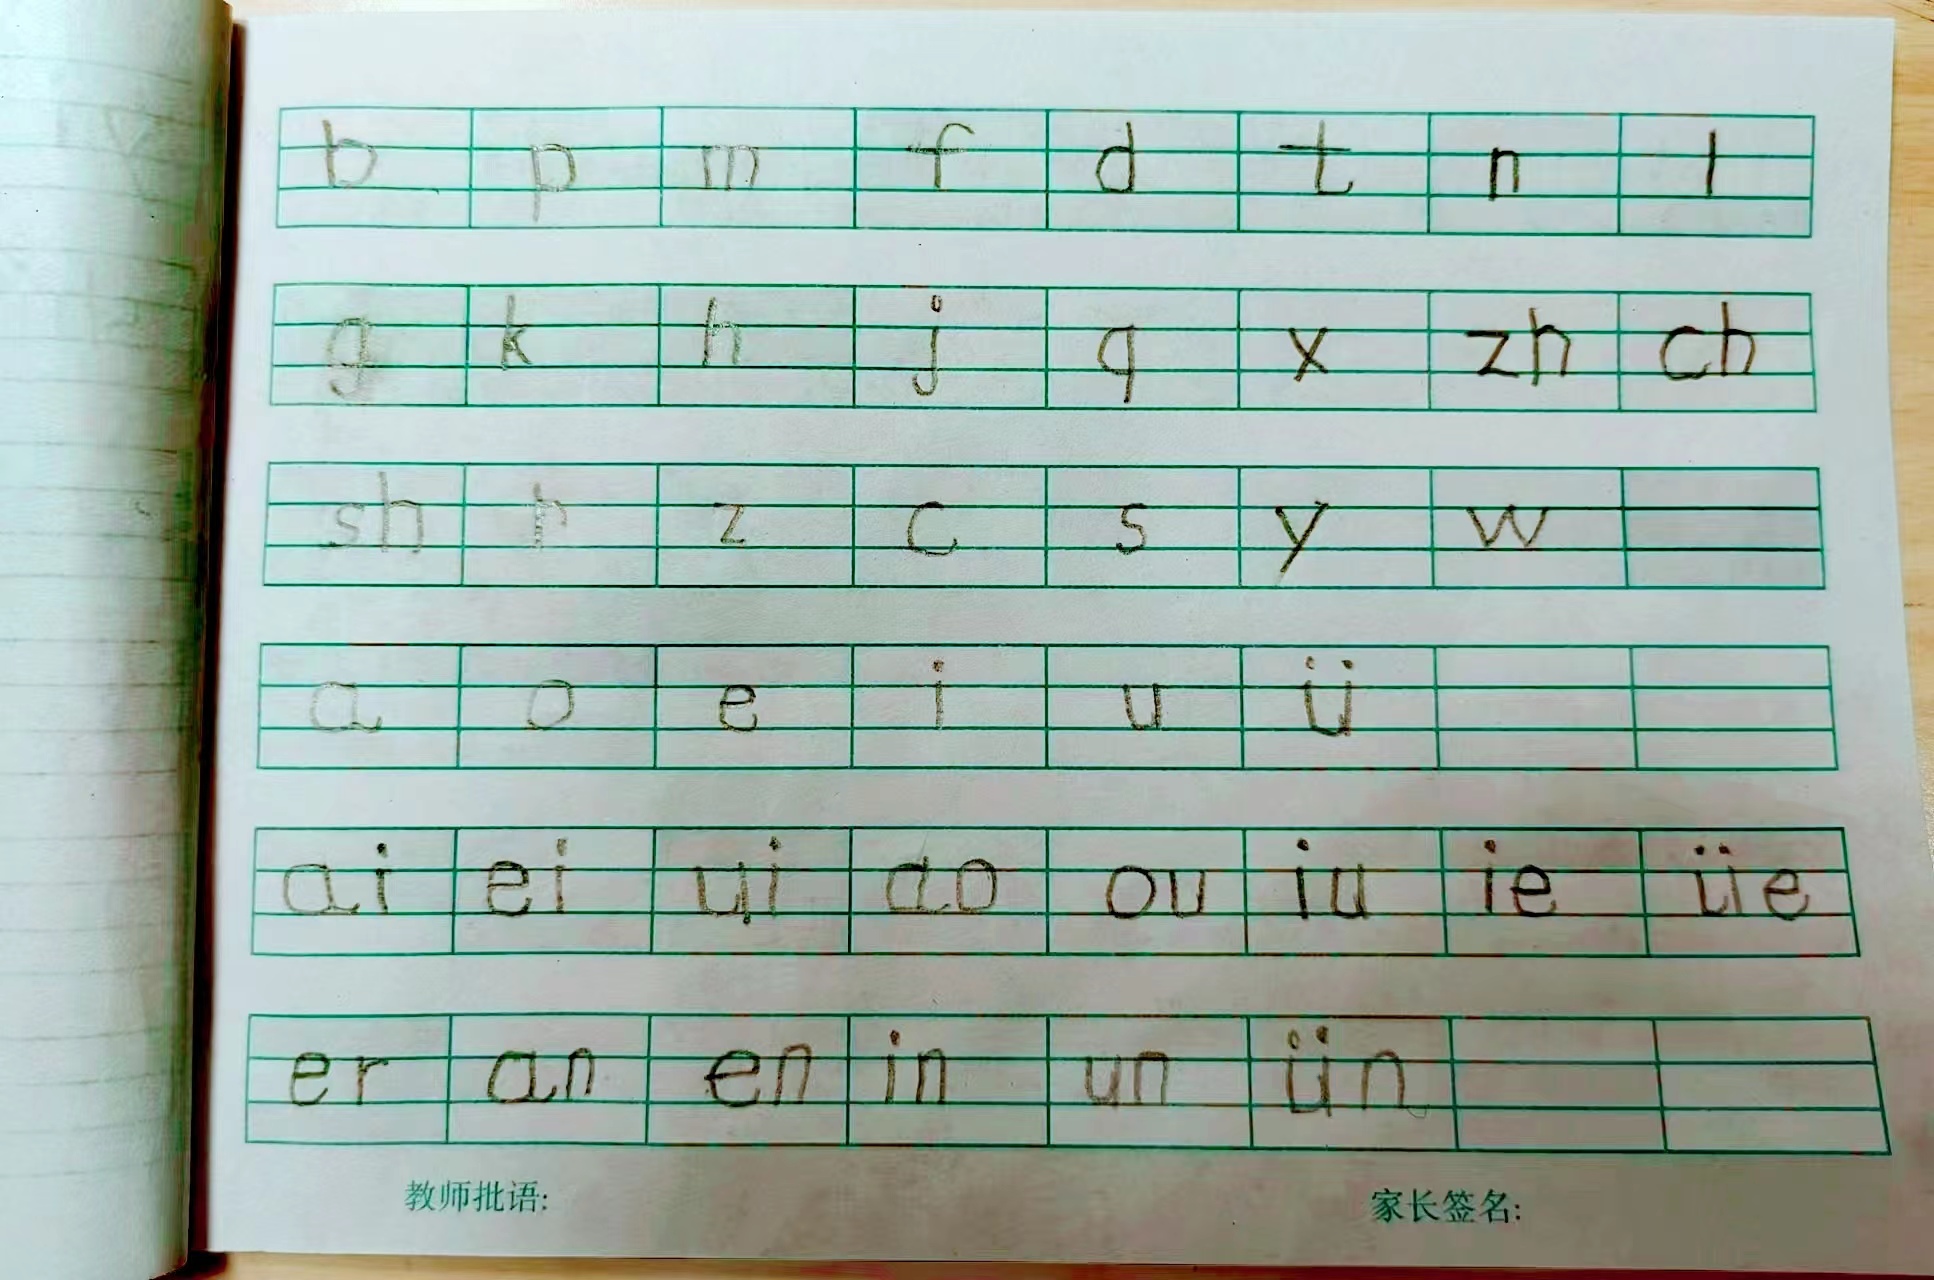 b p m f d t n l
g k h j q x zh ch
sh r z c s y w
a o e i u ü
ai ei ui ao ou iu ie üe
er an en in un ün
教师批语: 家长签名: